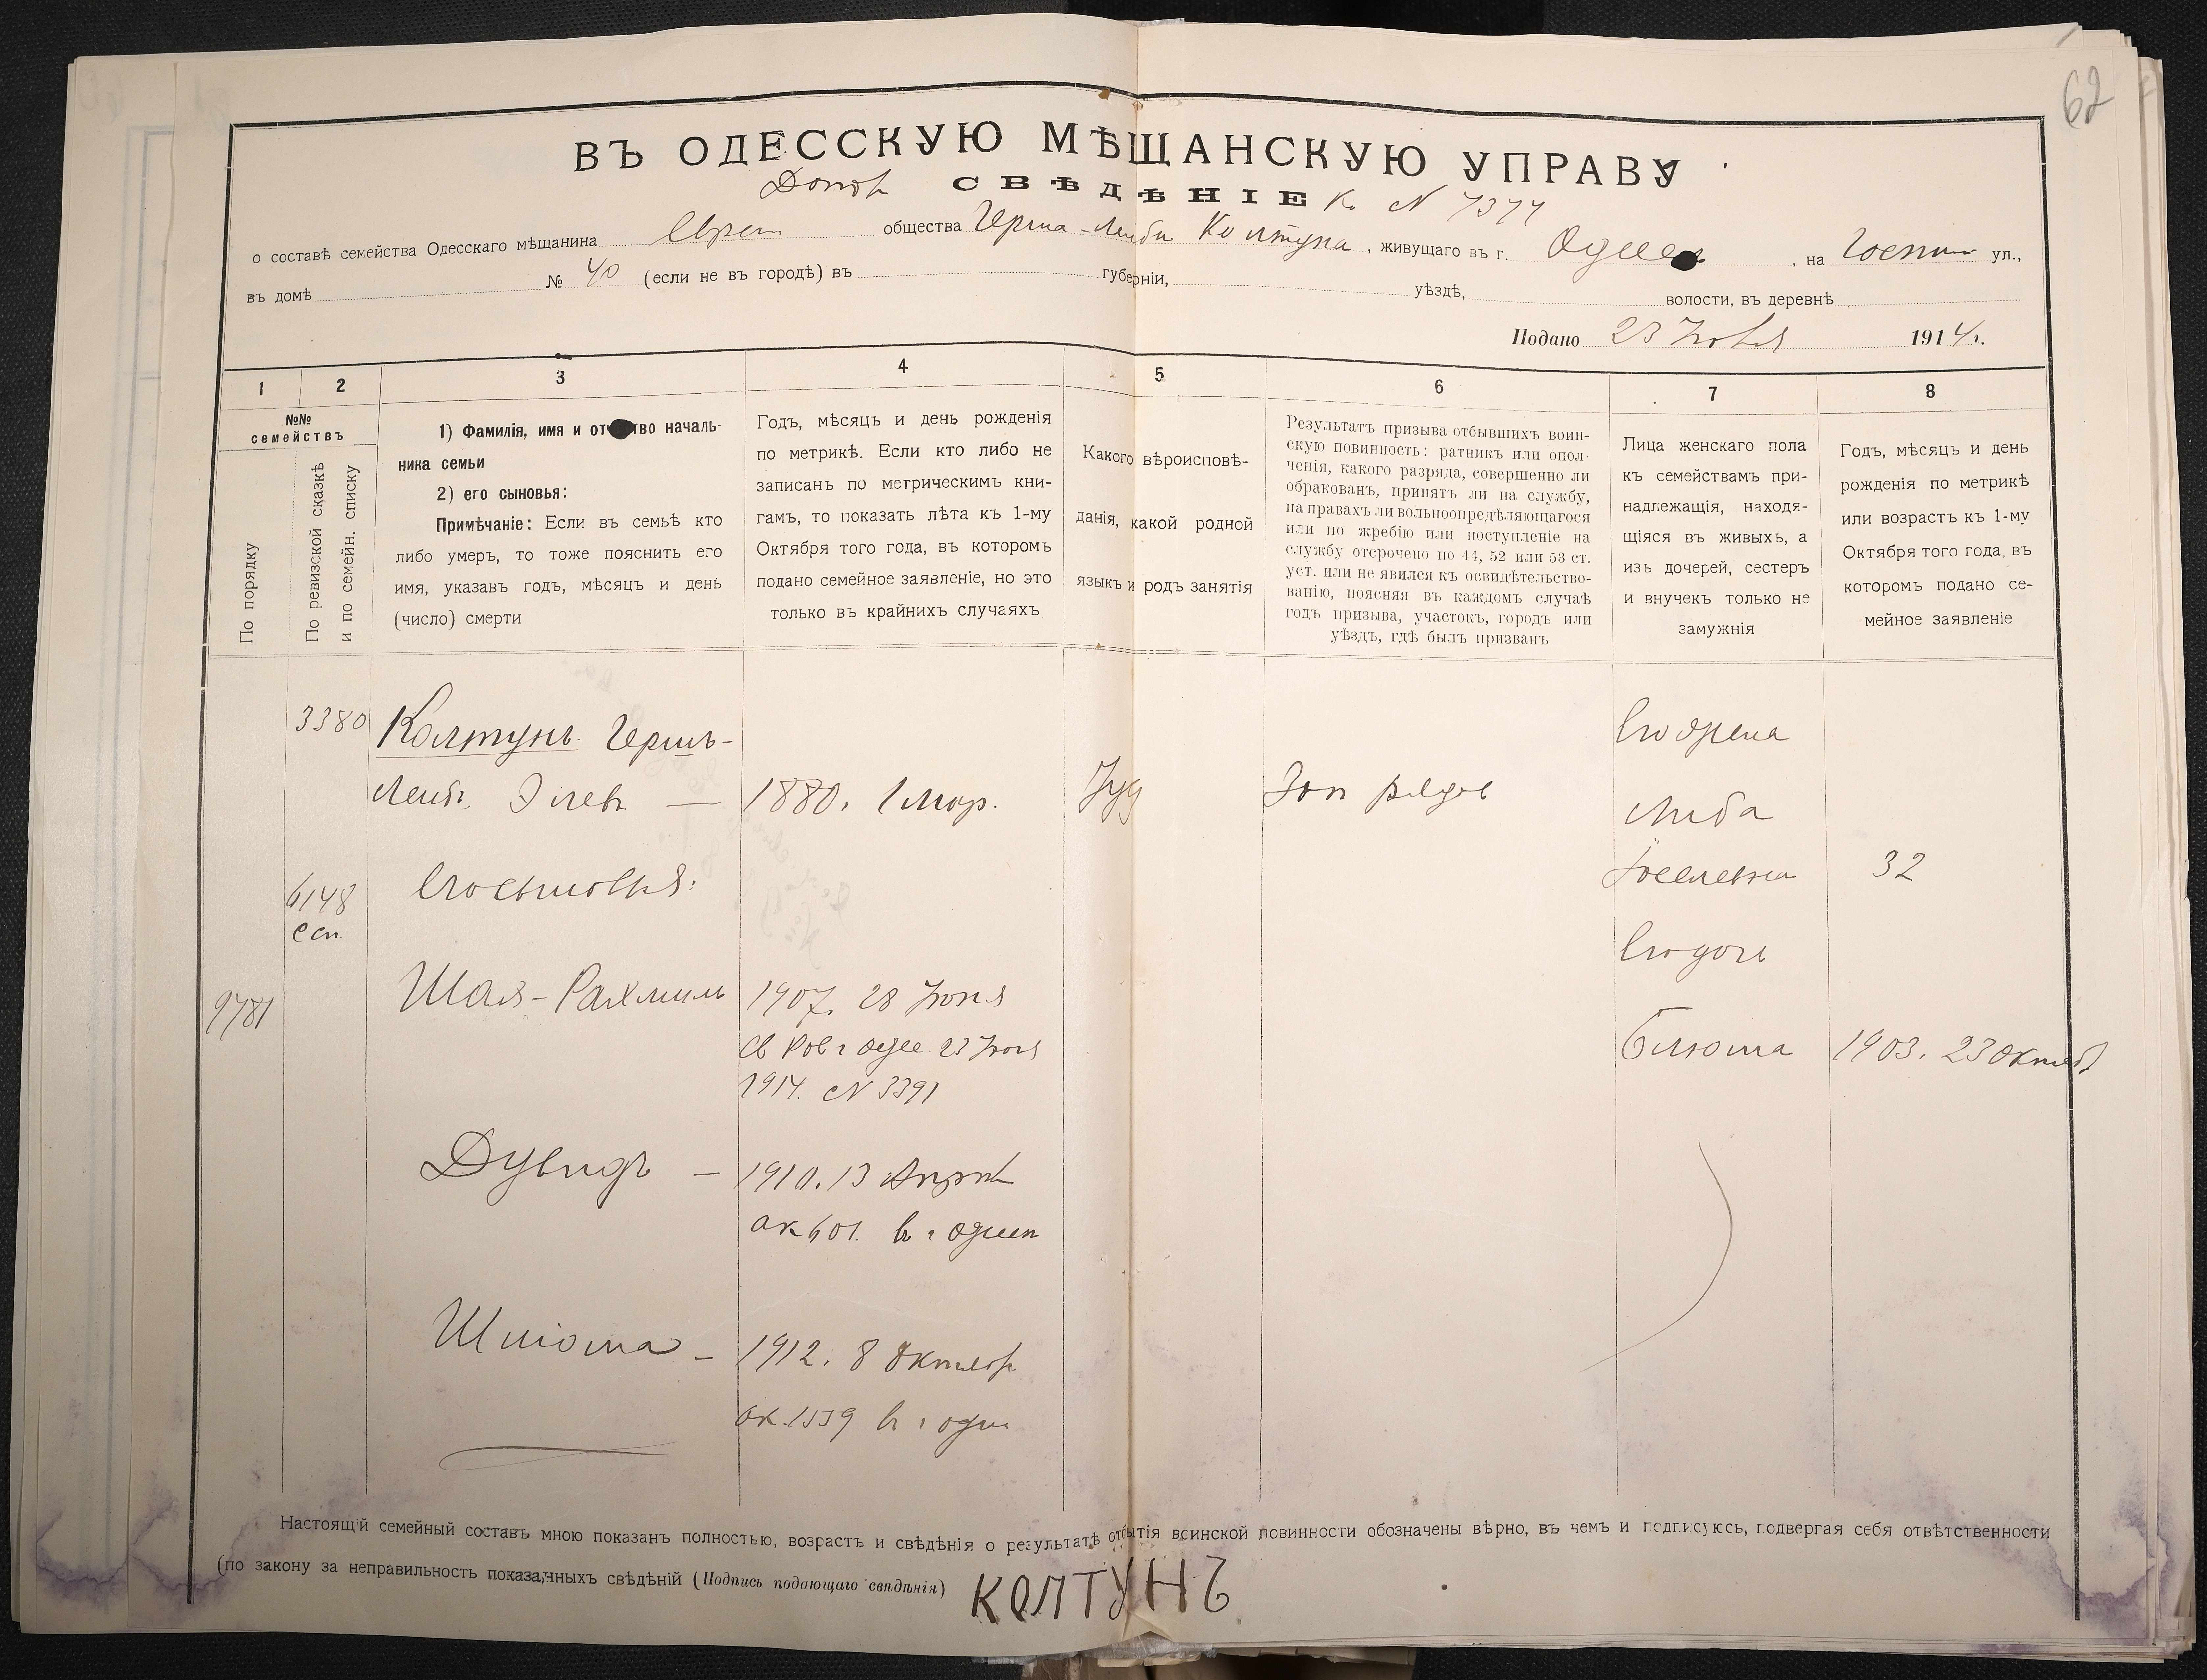 62
ВЪ ОДЕССКУЮ МѢЩАНСКУЮ УПРАВУ
СВѢДѢНІЕ К № 7377
о составѣ семейства Одесскаго мѣщанина Еврей общества Герша-Лейби Колтуна, живущаго въ г. Одессѣ, на Госпит ул.,
въ домѣ № 40 (если не въ городѣ) въ губерніи, уѣздѣ, волости, въ деревнѣ
Подано 23 1914 г.
1 2 3 4 5 6 7 8
№№ семействъ
По порядку
По ревизской сказкѣ и по семейн. списку
1) Фамилія, имя и отчество началь-
ника семьи
2) его сыновья:
Примѣчаніе: Если въ семьѣ кто
либо умеръ, то тоже пояснить его
имя, указавъ годъ, мѣсяцъ и день
(число) смерти
Годъ, мѣсяцъ и день рожденія
по метрикѣ. Если кто либо не
записанъ по метрическимъ кни-
гамъ, то показать лѣта къ 1-му
Октября того года, въ которомъ
подано семейное заявленіе, но это
только въ крайнихъ случаяхъ
Какого вѣроисповѣ-
данія, какой родной
языкъ и родъ занятія
Результатъ призыва отбывшихъ воин-
скую повинность: ратникъ или опол-
ченія, какого разряда, совершенно ли
обракованъ, принятъ ли на службу,
на правахъ ли вольноопредѣляющагося
или по жребію или поступленіе на
службу отсрочено по 44, 52 или 53 ст.
уст. или не явился къ освидѣтельство-
ванію, поясняя въ каждомъ случаѣ
годъ призыва, участокъ, городъ или
уѣздъ, гдѣ былъ призванъ
Лица женскаго пола
къ семействамъ при-
надлежащія, находя-
щіяся въ живыхъ, а
изъ дочерей, сестеръ
и внучекъ только не
замужнія
Годъ, мѣсяцъ и день
рожденія по метрикѣ
или возрастъ къ 1-му
Октября того года, въ
которомъ подано се-
мейное заявленіе
3380 Колтунъ Гершъ- Его жена
Лейбъ Элевъ — 1880. 1 мар. Іуд Зап рядов Либа
6148 Его сыновья: Іоселевна 32
Есп.
Его дочь
9781 Шая-Рахмиль 1907. 28 Іюня
Св Рав г Одес. 23 Іюня Блюма 1903. 23 Октяб
1914. № 3391
Дувидъ — 1910. 13 Апрѣл
ак 601. въ г Одессѣ
Шліома — 1912. 8 Октябр
ак. 1539 въ г Одес
Настоящій семейный составъ мною показанъ полностью, возрастъ и свѣдѣнія о результатѣ отбытія воинской повинности обозначены вѣрно, въ чемъ и подписуюсь, подвергая себя отвѣтственности
(по закону за неправильность показанныхъ свѣдѣній (Подпись подающаго свѣдѣнія) КОЛТУНЪ